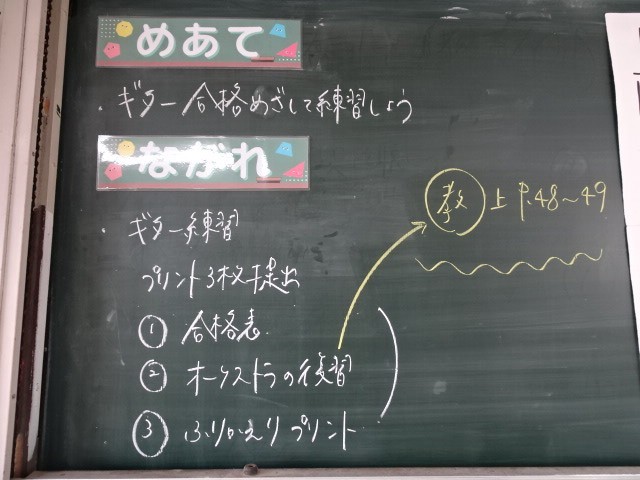 めあて
・ギター合格めざして練習しよう
ながれ
・ギター練習
プリント3枚提出
① 合格表
② オーケストラの復習
③ ふりかえりプリント
教 上 P.48〜49